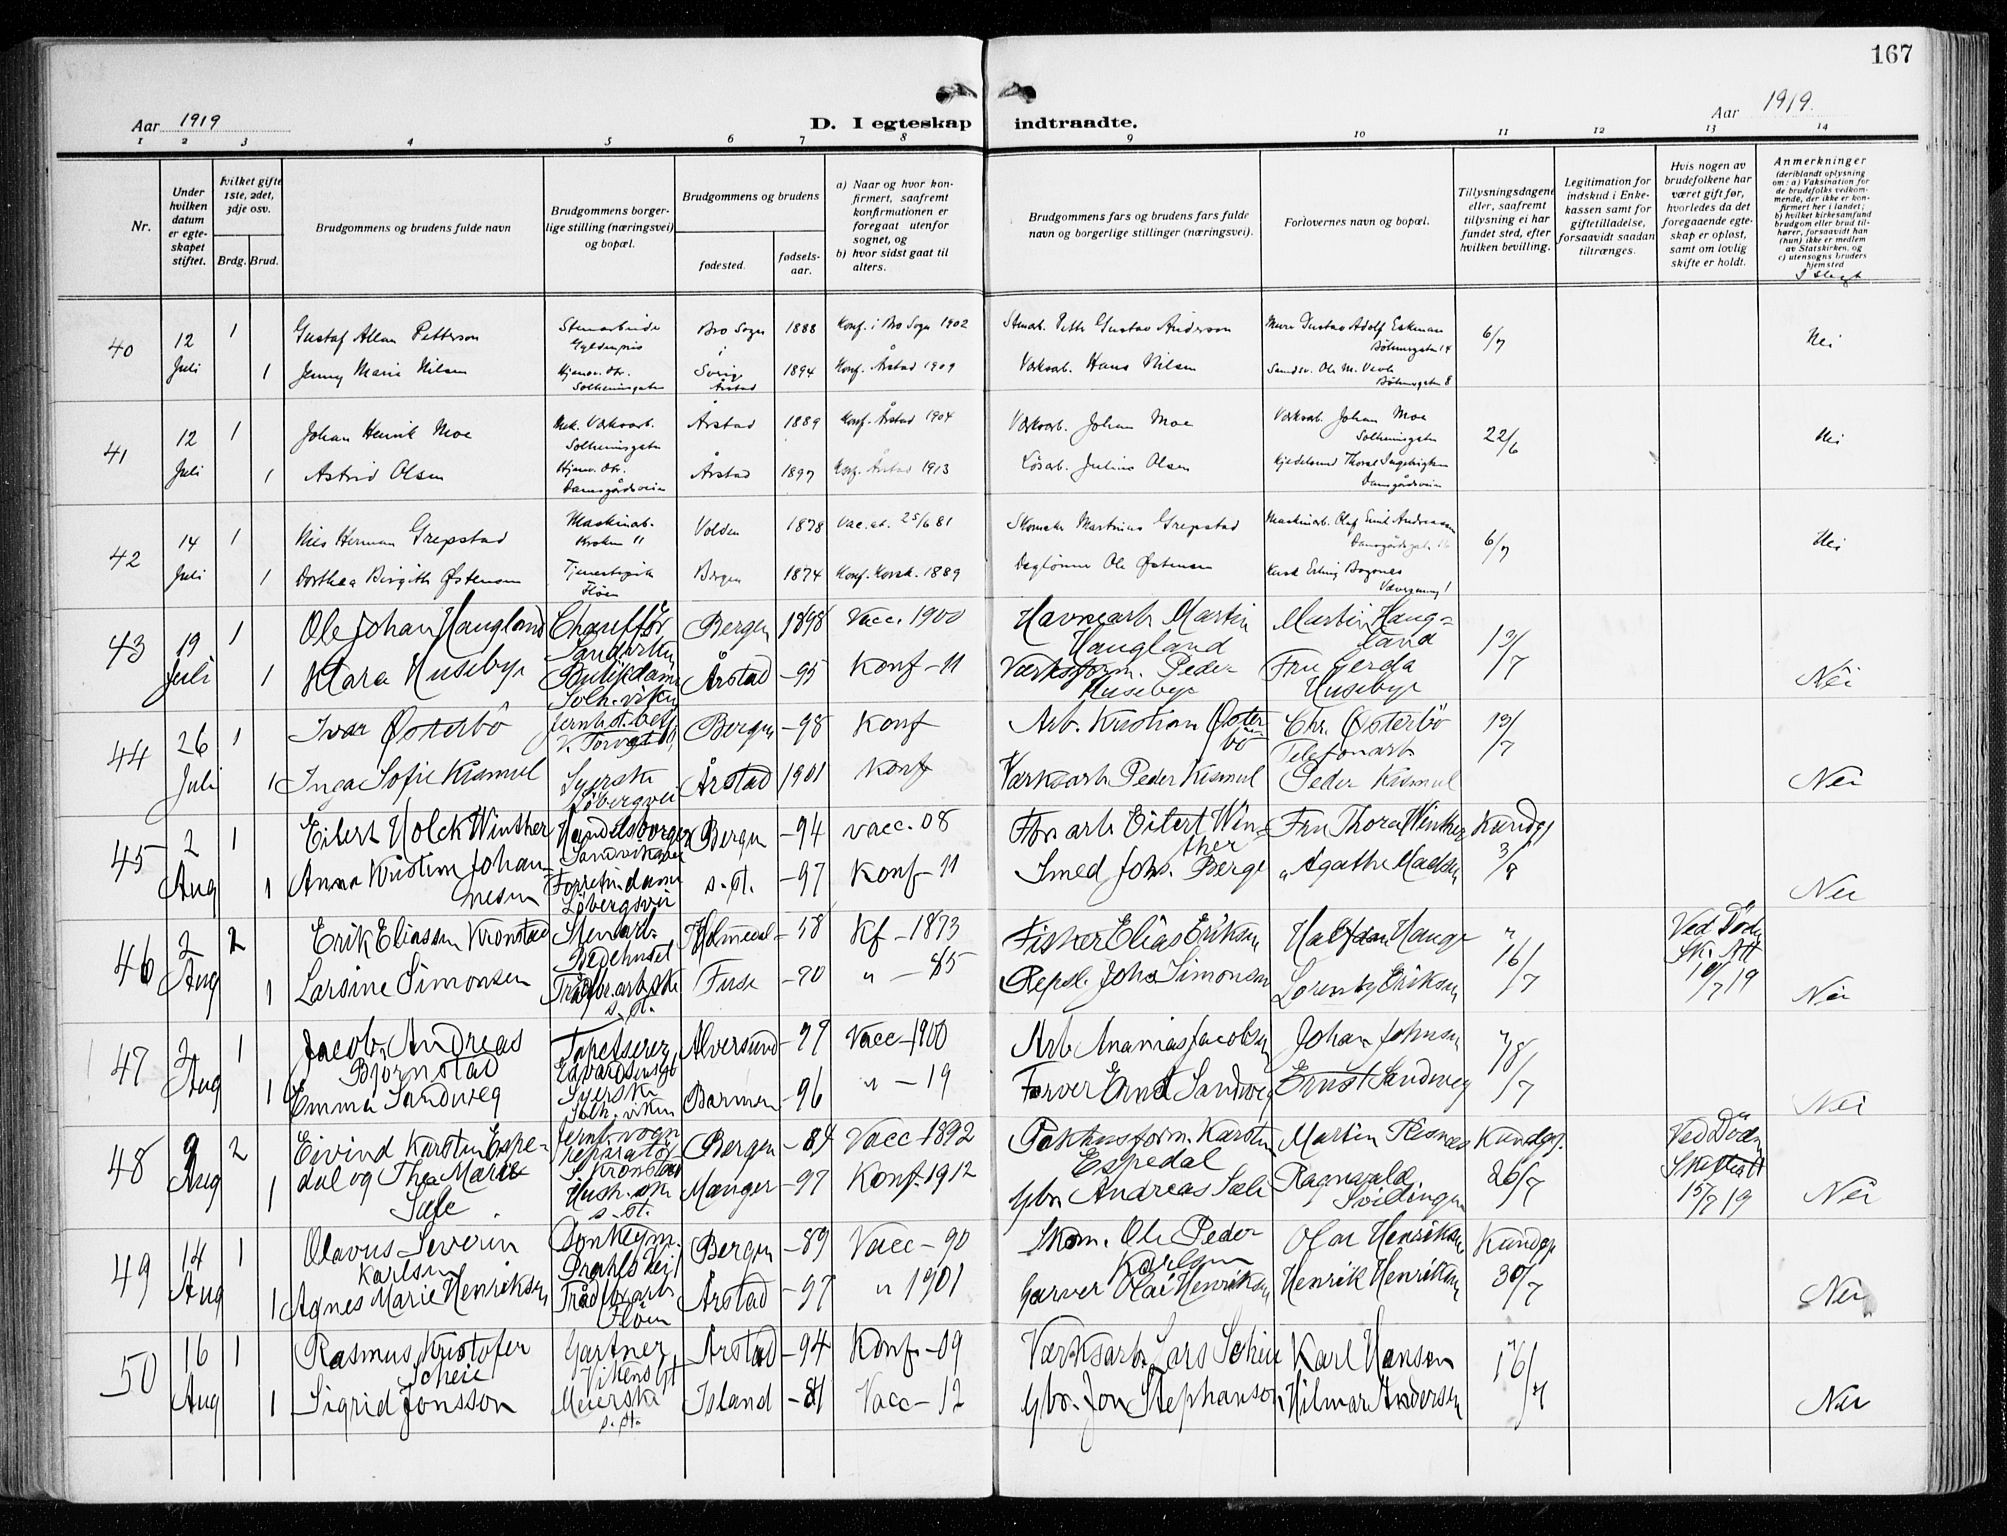 167
Aar 1919
D. I egteskap indtraadte.
Aar 1919.
1 2 3 4 5 6 7 8 9 10 11 12 13 14
Nr.
Under hvilken datum er egteskapet stiftet.
hvilket gifte 1ste, 2det, 3dje osv.
Brdg. Brud.
Brudgommens og brudens fulde navn
Brudgommens borgerlige stilling (næringsvei) og bopæl.
Brudgommens og brudens
fødested.
fødselsaar.
a) Naar og hvor konfirmert, saafremt konfirmationen er foregaat utenfor sognet, og
b) hvor sidst gaat til alters.
Brudgommens fars og brudens fars fulde navn og borgerlige stillinger (næringsvei).
Forlovernes navn og bopæl.
Tillysningsdagene eller, saafremt tillysning ei har fundet sted, efter hvilken bevilling.
Legitimation for indskud i Enkekassen samt for giftetilladelse, forsaavidt saadan tiltrænges.
Hvis nogen av brudefolkene har været gift før, hvorledes da det foregaaende egteskap er opløst, samt om lovlig skifte er holdt.
Anmerkninger (deriblandt oplysning om: a) Vaksination for de brudefolks vedkommende, der ikke er konfirmert her i landet; b) hvilket kirkesamfund brudgom eller brud tilhører, forsaavidt han (hun) ikke er medlem av Statskirken, og c) utensogns bruders hjemsted
I slegt
40 12 Juli 1 Gustaf Allan Petterson Stenarbeider Gyldenpris Bro Sogn i Sverig 1888 Konf. i Bro Sogn 1902 Stenarb. Petter Gustav Anderson Murer Gustav Adolf Eskman Bøhmergaten 14 6/7 Nei
1 Jenny Marie Nilsen Hjemv. dtr. Solheimsgaten Årstad 1894 Konf. Årstad 1909 Værksarb. Hans Nilsen Ole M. Bøhmergaten 8
41 12 Juli 1 Johan Henrik Moe Mek. Værksarb. Solheimsgaten Årstad 1889 Konf. Årstad 1904 Værksarb. Johan Moe Værksarb. Johan Moe Solheimsgaten 22/6 Nei
1 Astrid Olsen Hjemv. dtr. Damsgårdsveien Årstad 1897 Konf. Årstad 1913 Løsarb. Julius Olsen Thoral Ingebrigtsen Damsgårdsveien
42 14 Juli 1 Nils Herman Grepstad Maskinarb. Kroken 11 Volden 1878 Vac. at. 25/6 81 Skomaker Martinus Grepstad Maskinarb. Olaf Emil Andreassen Damsgårdsgaten 6/7 Nei
1 Dorthea Birgitte Østensen Tjenestepike Fløen Bergen 1874 Konf. Korsk. 1889 Daglønner Ole Østensen Erling Bognes
43 19 Juli 1 Ole Johan Haugland Chauffør Sandviken Bergen 1898 Vacc. 1900 Havnearb Martin Haugland Martin Haugland 13/7
1 Klara Husebye Butikdame Solh.viken Årstad -95 Konf -11 Værksform. Peder Husebye Fru Gerda Husebye Nei
44 26 Juli 1 Ivar Østerbö Jernbst.betj. V. Torvgt 10 Bergen -98 Konf Arb. Kristian Østerbö Chr. Østerbö Telefonarb 13/7
1 Inga Sofie Kismul Syerske Løbergsvei Årstad 1901 Konf Værksarb Peder Kismul Peder Kismul Nei
45 2 Aug 1 Eilert Holck Winther Handelsborger Sandviksvei Bergen -94 vacc. 08 Eilert Winther Fru Thora Winther Kundgj 3/8
1 Anna Kristine Johannesen Forretn.dame Løbergsvei s. st. -97 Konf -11 Smed Johs. Berge " Agathe Madsen Nei
46 2 Aug 2 Erik Eliassen Kronstad Stenarb. Bedehuset Holmedal -58 Kf -1873 Fisker Elias Eriksen Halfdan Hauge 16/7 Ved Död Sk. Att 10/7 19
1 Larsine Simonsen Trådfbr.arb.ske s. st. Fuse -70 " -85 Repsl. Johs Simonsen Lorentz Eriksen Nei
47 2 Aug 1 Jacob Andreas Bjørnstad Tapetserer Edvardsensgt Alversund -97 Vacc -1900 Arb Ananias Jacobsen Johan Johnsen 18/7
1 Emma Sandweg Syerske Solh. viken Barmen -96 " -19 Farver Ernst Sandweg Ernst Sandweg Nei
48 9 Aug 2 Eivind Karsten Espedal og Thea Marie Sæle Jernb. vogn reparatør S. Kronstad Bergen -84 Vacc -1892 Pakhusform. Karsten Espedal Martin Kundgj. 26/7 Ved Död Skifteatt 15/7 19
1 Hush. ske s. st. Manger -97 Konf. 1912 Gbr. Andreas Sæle Ragnvald Svidingen Nei
49 14 Aug 1 Olavus Severin Karlsen Donkeym. Prahls Vei 1 Bergen -89 Vacc -90 Skom. Ole Peder Karlsen Olai Henriksen Kundgj 30/7
1 Agnes Marie Henriksen Trådfbrarb Fløen Årstad -97 " 1901 Garver Olai Henriksen Henrik Henriksen Nei
50 16 Aug 1 Rasmus Kristofer Scheie Gartner Vikens Gt Årstad -94 Konf. -09 Værksarb. Lars Scheie Karl Hansen 16/7
1 Sigrid Jonsson Meierske s. st. Island -81 Vacc -12 Gbr. Jon Stephanson Hilmar Andersen Nei